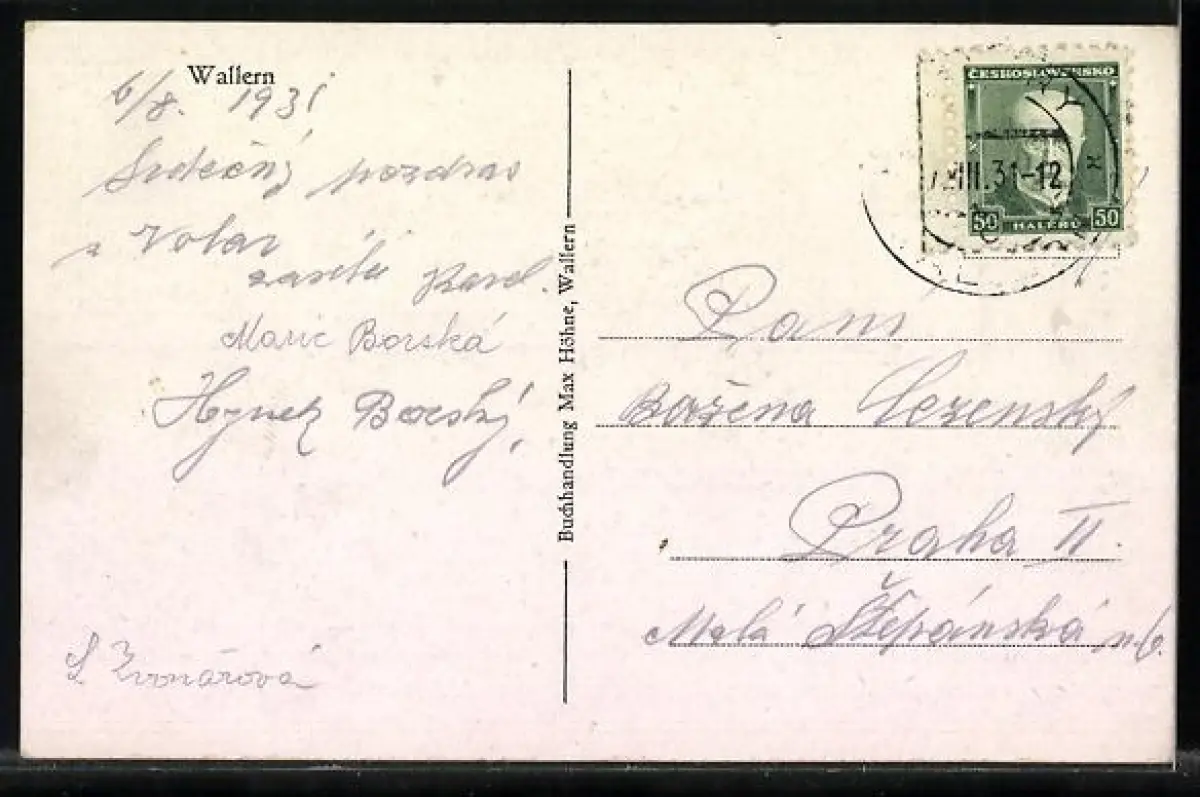 Wallern
6/8. 1931
Srdečný pozdrav
z Volar
zasílá Karel.
Marie Borská
Hynek Borský,
Buchhandlung Max Höhne, Wallern
ČESKOSLOVENSKO
VIII.31-12
50 50
HALÉŘŮ
Paní
Božena
Praha II.
Malá Štěpánská